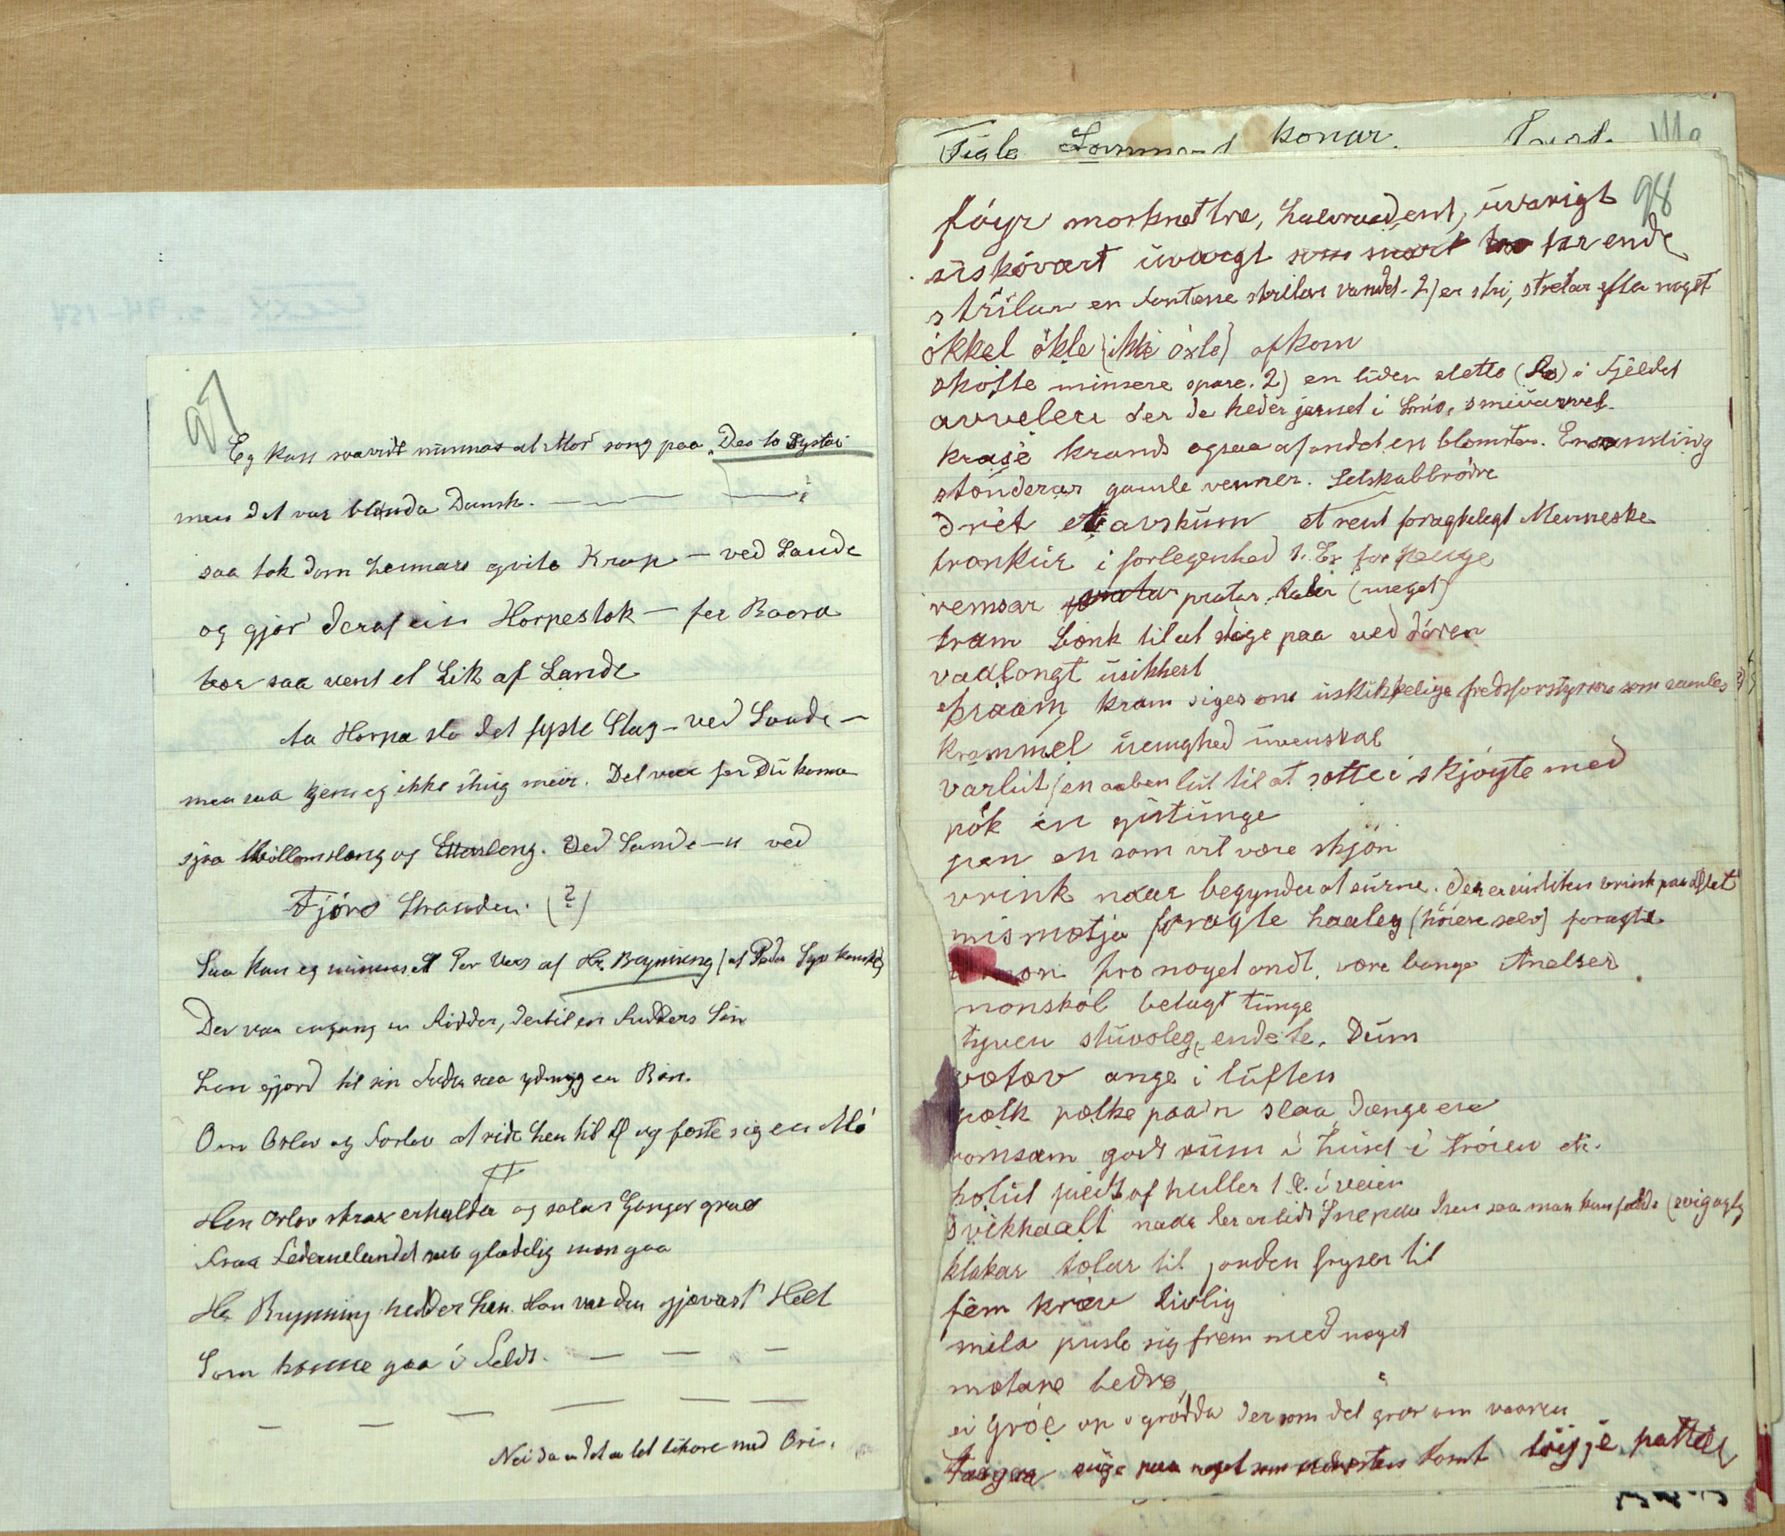 97
Eg kan saavidt minnas at Mor song paa "Dæ to Systar
men det var blanda Dansk. — — — —
saa tok dom hennars qvite Krop — ved Sande
og gjør deraf ein Horpestok — før Baara
bær saa vent et Lik af Lande
Aa Horpa slo det fyste Slag — ved Sande —
men saa kjem eg ikke ihug meir. Det var før Du komme
sjøa Møllomslæng og Ettersleng. Ved Sande — u ved
Fjörd Stranden. (?)
Saa kan eg minnas et Par Vers af Hr. Brynning (af Peder Syv kanske)
Der var engang en Ridder, dertil en Ridders Søn
han gjord til sin Fader saa ydmyg en Bøn.
Om Orlov og Forlov at ride hen til Ø og feste sig en Mø
Hen Orlov strax erholder og salar Ganger graa
Fraa Federnelandet saa gladelig mon gaa
Hr Brynning hedder han. Han var den gjævast' Helt
Som kunne gaa i Feldt. — — —
— — — — — —
Nei da a det a let likare med Ori.
Tigle konar.
98
föyr morknettre, halvraadent, uvarigt
üskövært üvargt som snart farende
strilar en Fontene strilar vandet. 2) er stri, stretar efter noget
ökkel ökle (ikke öxle) afkom
sköfte minsere spare. 2) en liden slette (Flo) i Fjeldet
avveler der de heder jernet i Smio, smiüarvel.
krase krands ogsaa af andet en blomster. En samling
stöuderar gamle venner. Selskabbrödre
dret et avskum et rent foragtelegt Menneske
trankür i forlegenhed f. Ex for Penge
remsar pratar taler (meget)
tram bænk til at stige paa ved dören
vadlangt usikkert
praam kram siges om uskikkelige fredsforstyrrere som samles
krammel uenighed uvenskab
varlut en aaben lut til at sætte i skjöyte med
pök en gutunge
pen en som vil være skjön
vrink naar begynder at surne. der er ein liten vrink paa Öllet
mismætja foragte haaleg (höiere selv) foragte
fro noget ondt, være bange Anelser
nonsköl belagt tunge
tynen stuvsleg, endete. Dum
vætæv ange i luften
pælk pælke paa'n slaa dænge ere
romsam godt rüm i huset i tröien etc.
holüt fuldt af huller f. E. i veien
svikhaalt naar der er lidt Sne paa Isen saa man kan falde
klakar tælar til jorden fryser til
fem kræv livlig
mila pusle sig frem med noget
mætare bedre
ei gröe op o grödda der som det gror om vaaren